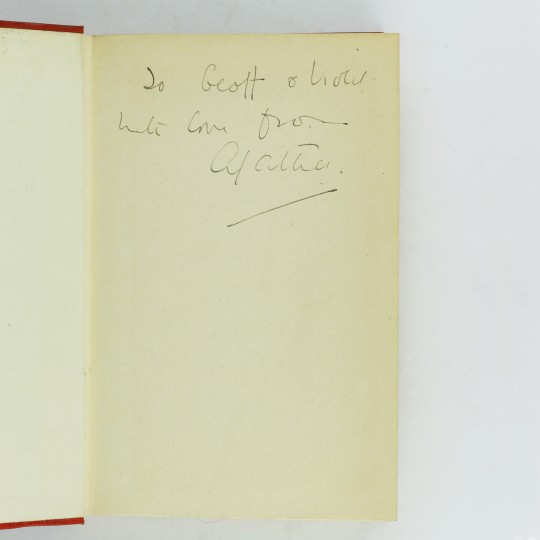 To Geoff & Violet
with love from
Agatha.